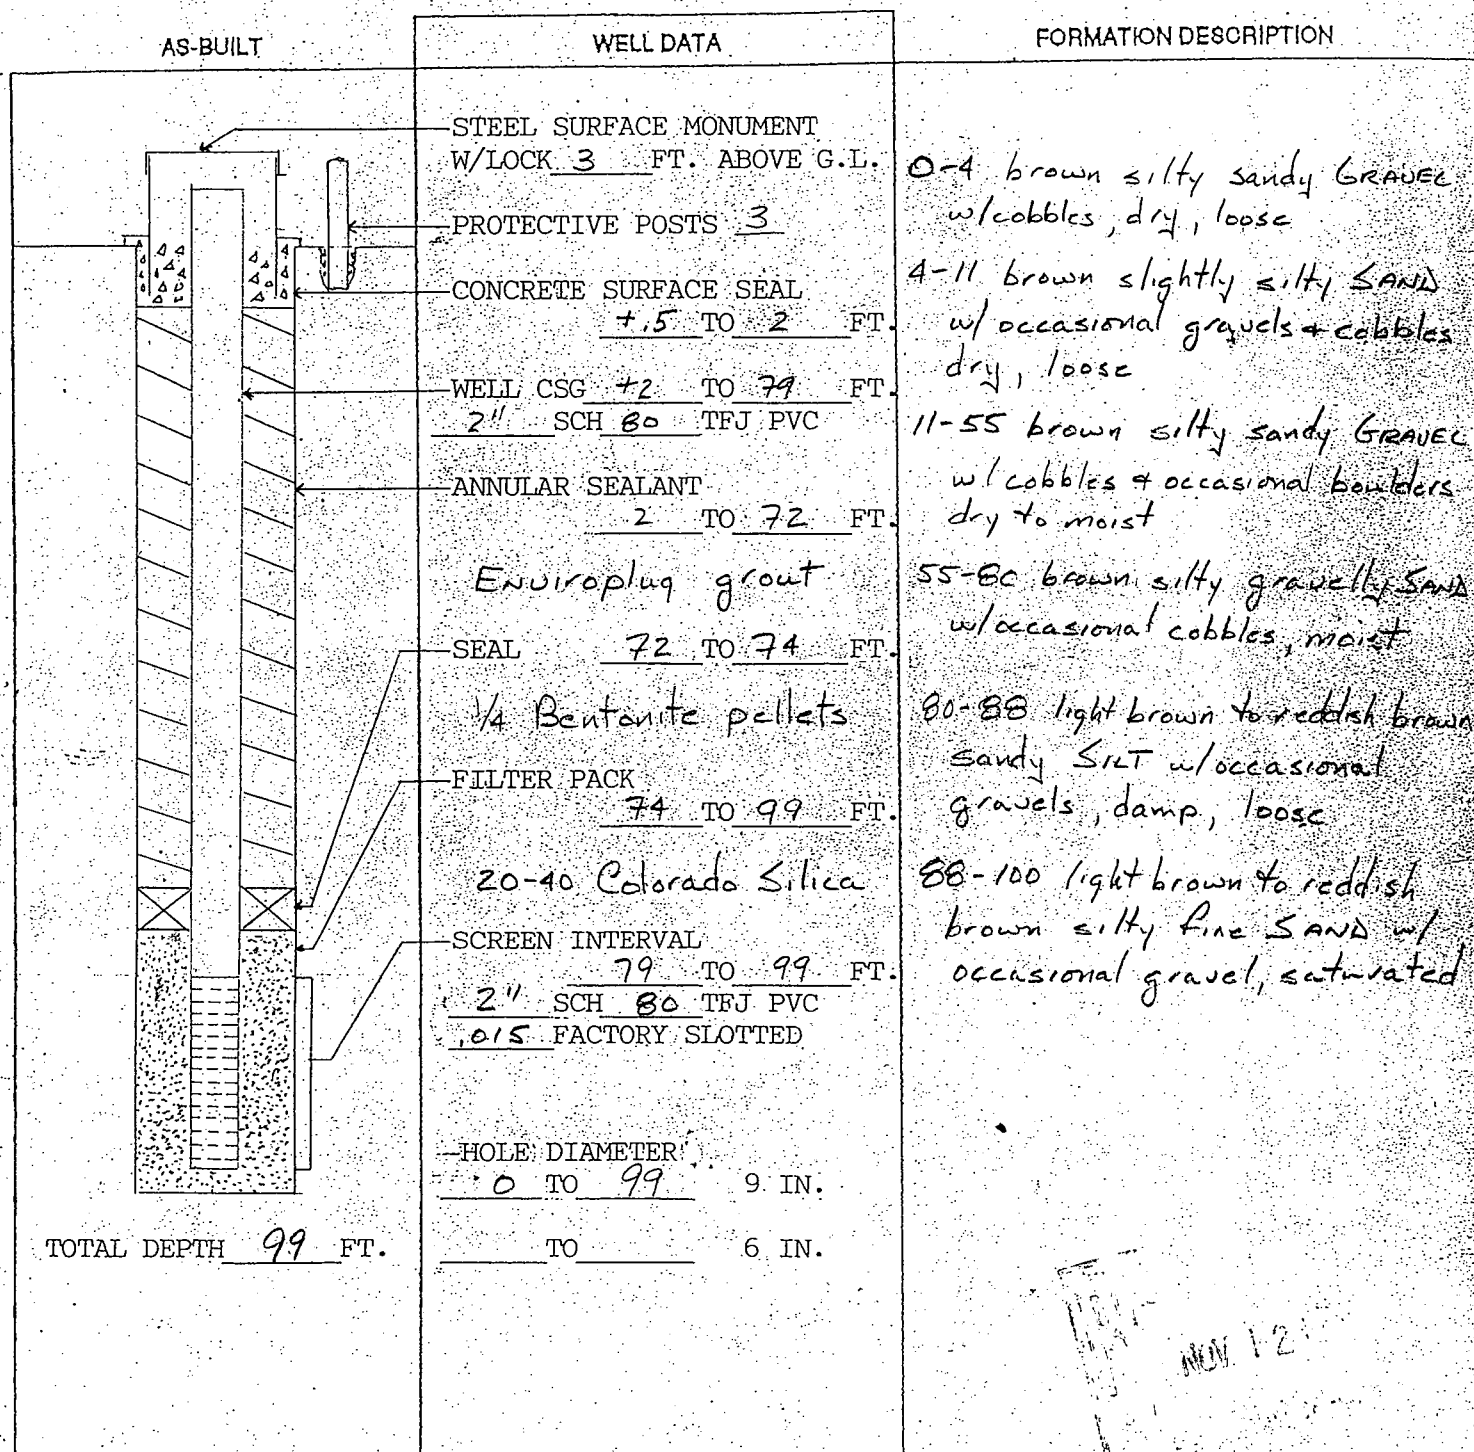 AS-BUILT
WELL DATA
FORMATION DESCRIPTION
STEEL SURFACE MONUMENT
W/LOCK 3 FT. ABOVE G.L.
PROTECTIVE POSTS 3
CONCRETE SURFACE SEAL
+.5 TO 2 FT.
WELL CSG +2 TO 79 FT.
2" SCH 80 TFJ PVC
ANNULAR SEALANT
2 TO 72 FT.
Enviroplug grout
SEAL 72 TO 74 FT.
1/4 Bentonite pellets
FILTER PACK
74 TO 99 FT.
20-40 Colorado Silica
SCREEN INTERVAL
79 TO 99 FT.
2" SCH 80 TFJ PVC
.015 FACTORY SLOTTED
HOLE DIAMETER
0 TO 99 9 IN.
TO 6 IN.
TOTAL DEPTH 99 FT.
0-4 brown silty sandy GRAVEL
w/cobbles, dry, loose
4-11 brown slightly silty SAND
w/ occasional gravels & cobbles
dry, loose
11-55 brown silty sandy GRAVEL
w/ cobbles & occasional boulders
dry to moist
55-80 brown silty gravelly SAND
w/occasional cobbles, moist
80-88 light brown to reddish brown
sandy SILT w/occasional
gravels, damp, loose
88-100 light brown to reddish
brown silty fine SAND w/
occasional gravel, saturated
NOV 12